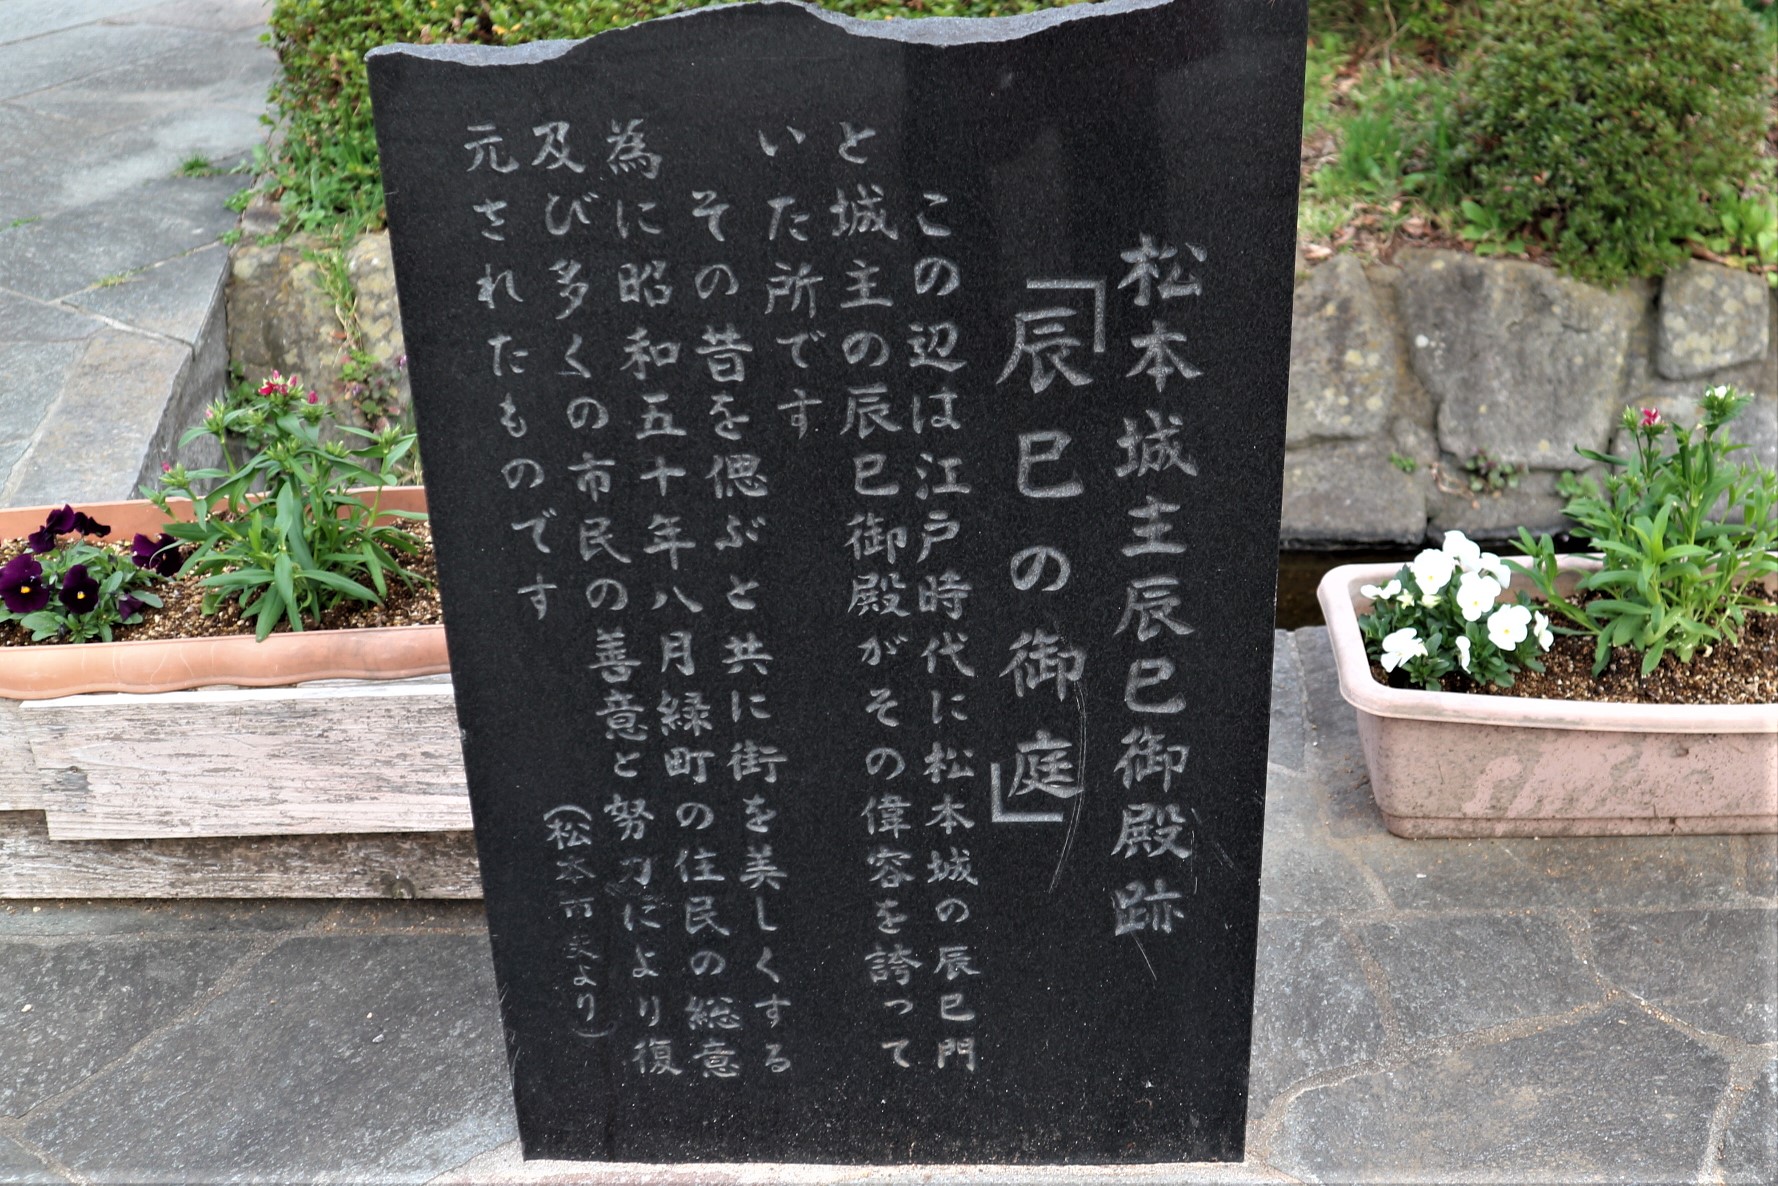 松本城主辰巳御殿跡
「辰巳の御庭」
この辺は江戸時代に松本城の辰巳門
と城主の辰巳御殿がその偉容を誇って
いた所です
その昔を偲ぶと共に街を美しくする
為に昭和五十年八月緑町の住民の総意
及び多くの市民の善意と努力により復
元されたものです
(松本市史より)